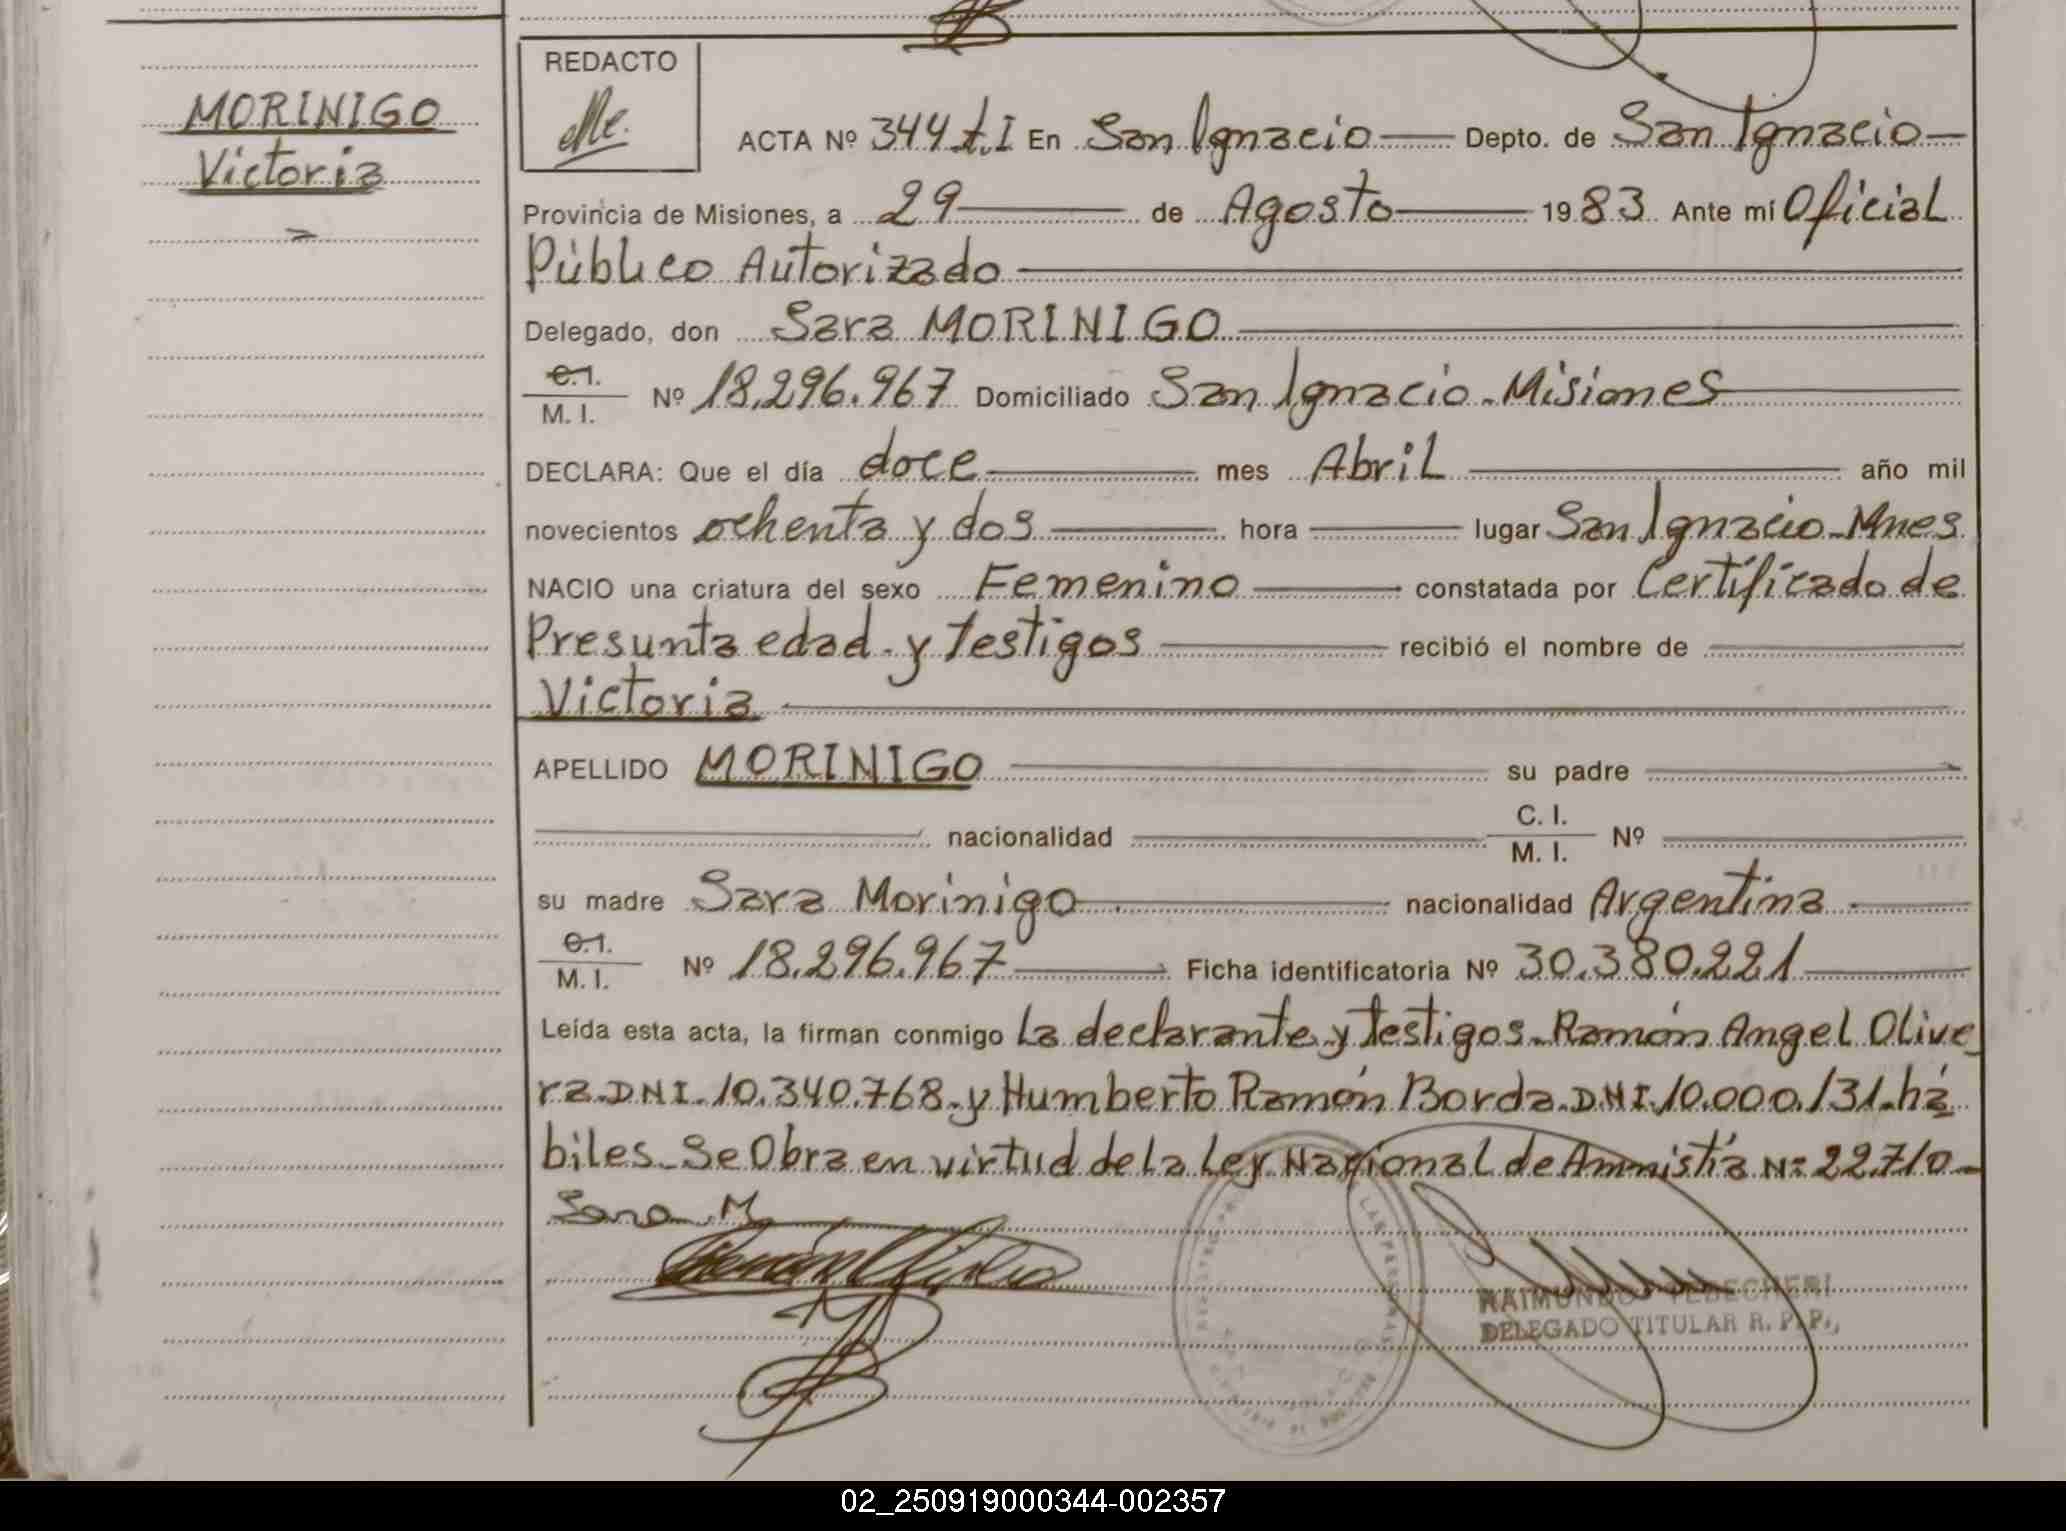 MORINIGO
Victoria
REDACTO
ACTA Nº 344 t. I En San Ignacio Depto. de San Ignacio
Provincia de Misiones, a 29 de Agosto 1983 Ante mí Oficial
Público Autorizado
Delegado, don Sara MORINIGO
C.I. M.I. Nº 18.296.967 Domiciliado San Ignacio - Misiones
DECLARA: Que el día doce mes Abril año mil
novecientos ochenta y dos hora lugar San Ignacio - Mnes
NACIO una criatura del sexo Femenino constatada por Certificado de
Presunta edad - y testigos recibió el nombre de
Victoria
APELLIDO MORINIGO su padre
nacionalidad C. I. M. I. Nº
su madre Sara Morinigo nacionalidad Argentina
C.I. M. I. Nº 18.296.967 Ficha identificatoria Nº 30.380.221
Leída esta acta, la firman conmigo La declarante y testigos - Ramón Angel Olive
ra - DNI. 10.340.768 - y Humberto Ramón Borda - DNI. 10.000.131 - há
biles - Se Obra en virtud de la Ley Nacional de Amnistía Nº 22.710 -
Sara M
RAIMUNDO
DELEGADO TITULAR R. P. P.,
02_250919000344-002357